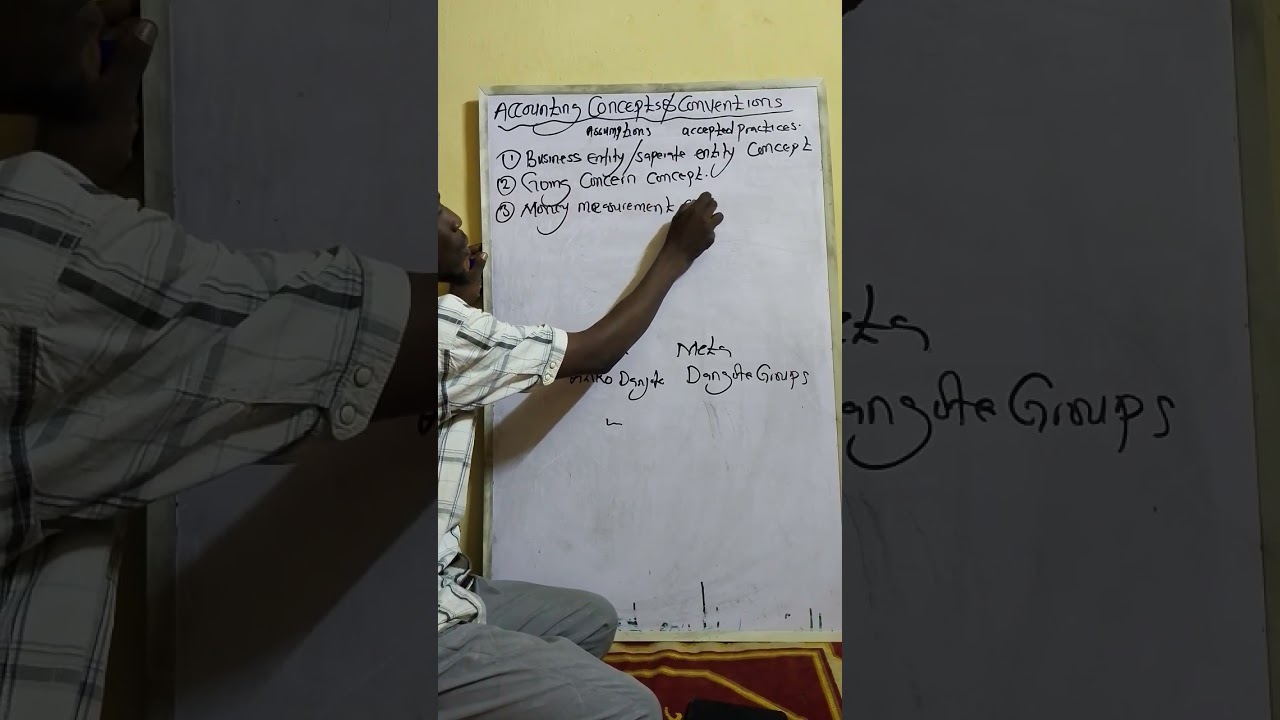 Accounting Concepts & Conventions
assumptions accepted practices.
① Business entity/saperate entity Concept
② Going Concern Concept.
③ Money measurement
Meta
Dangote Dangote Groups